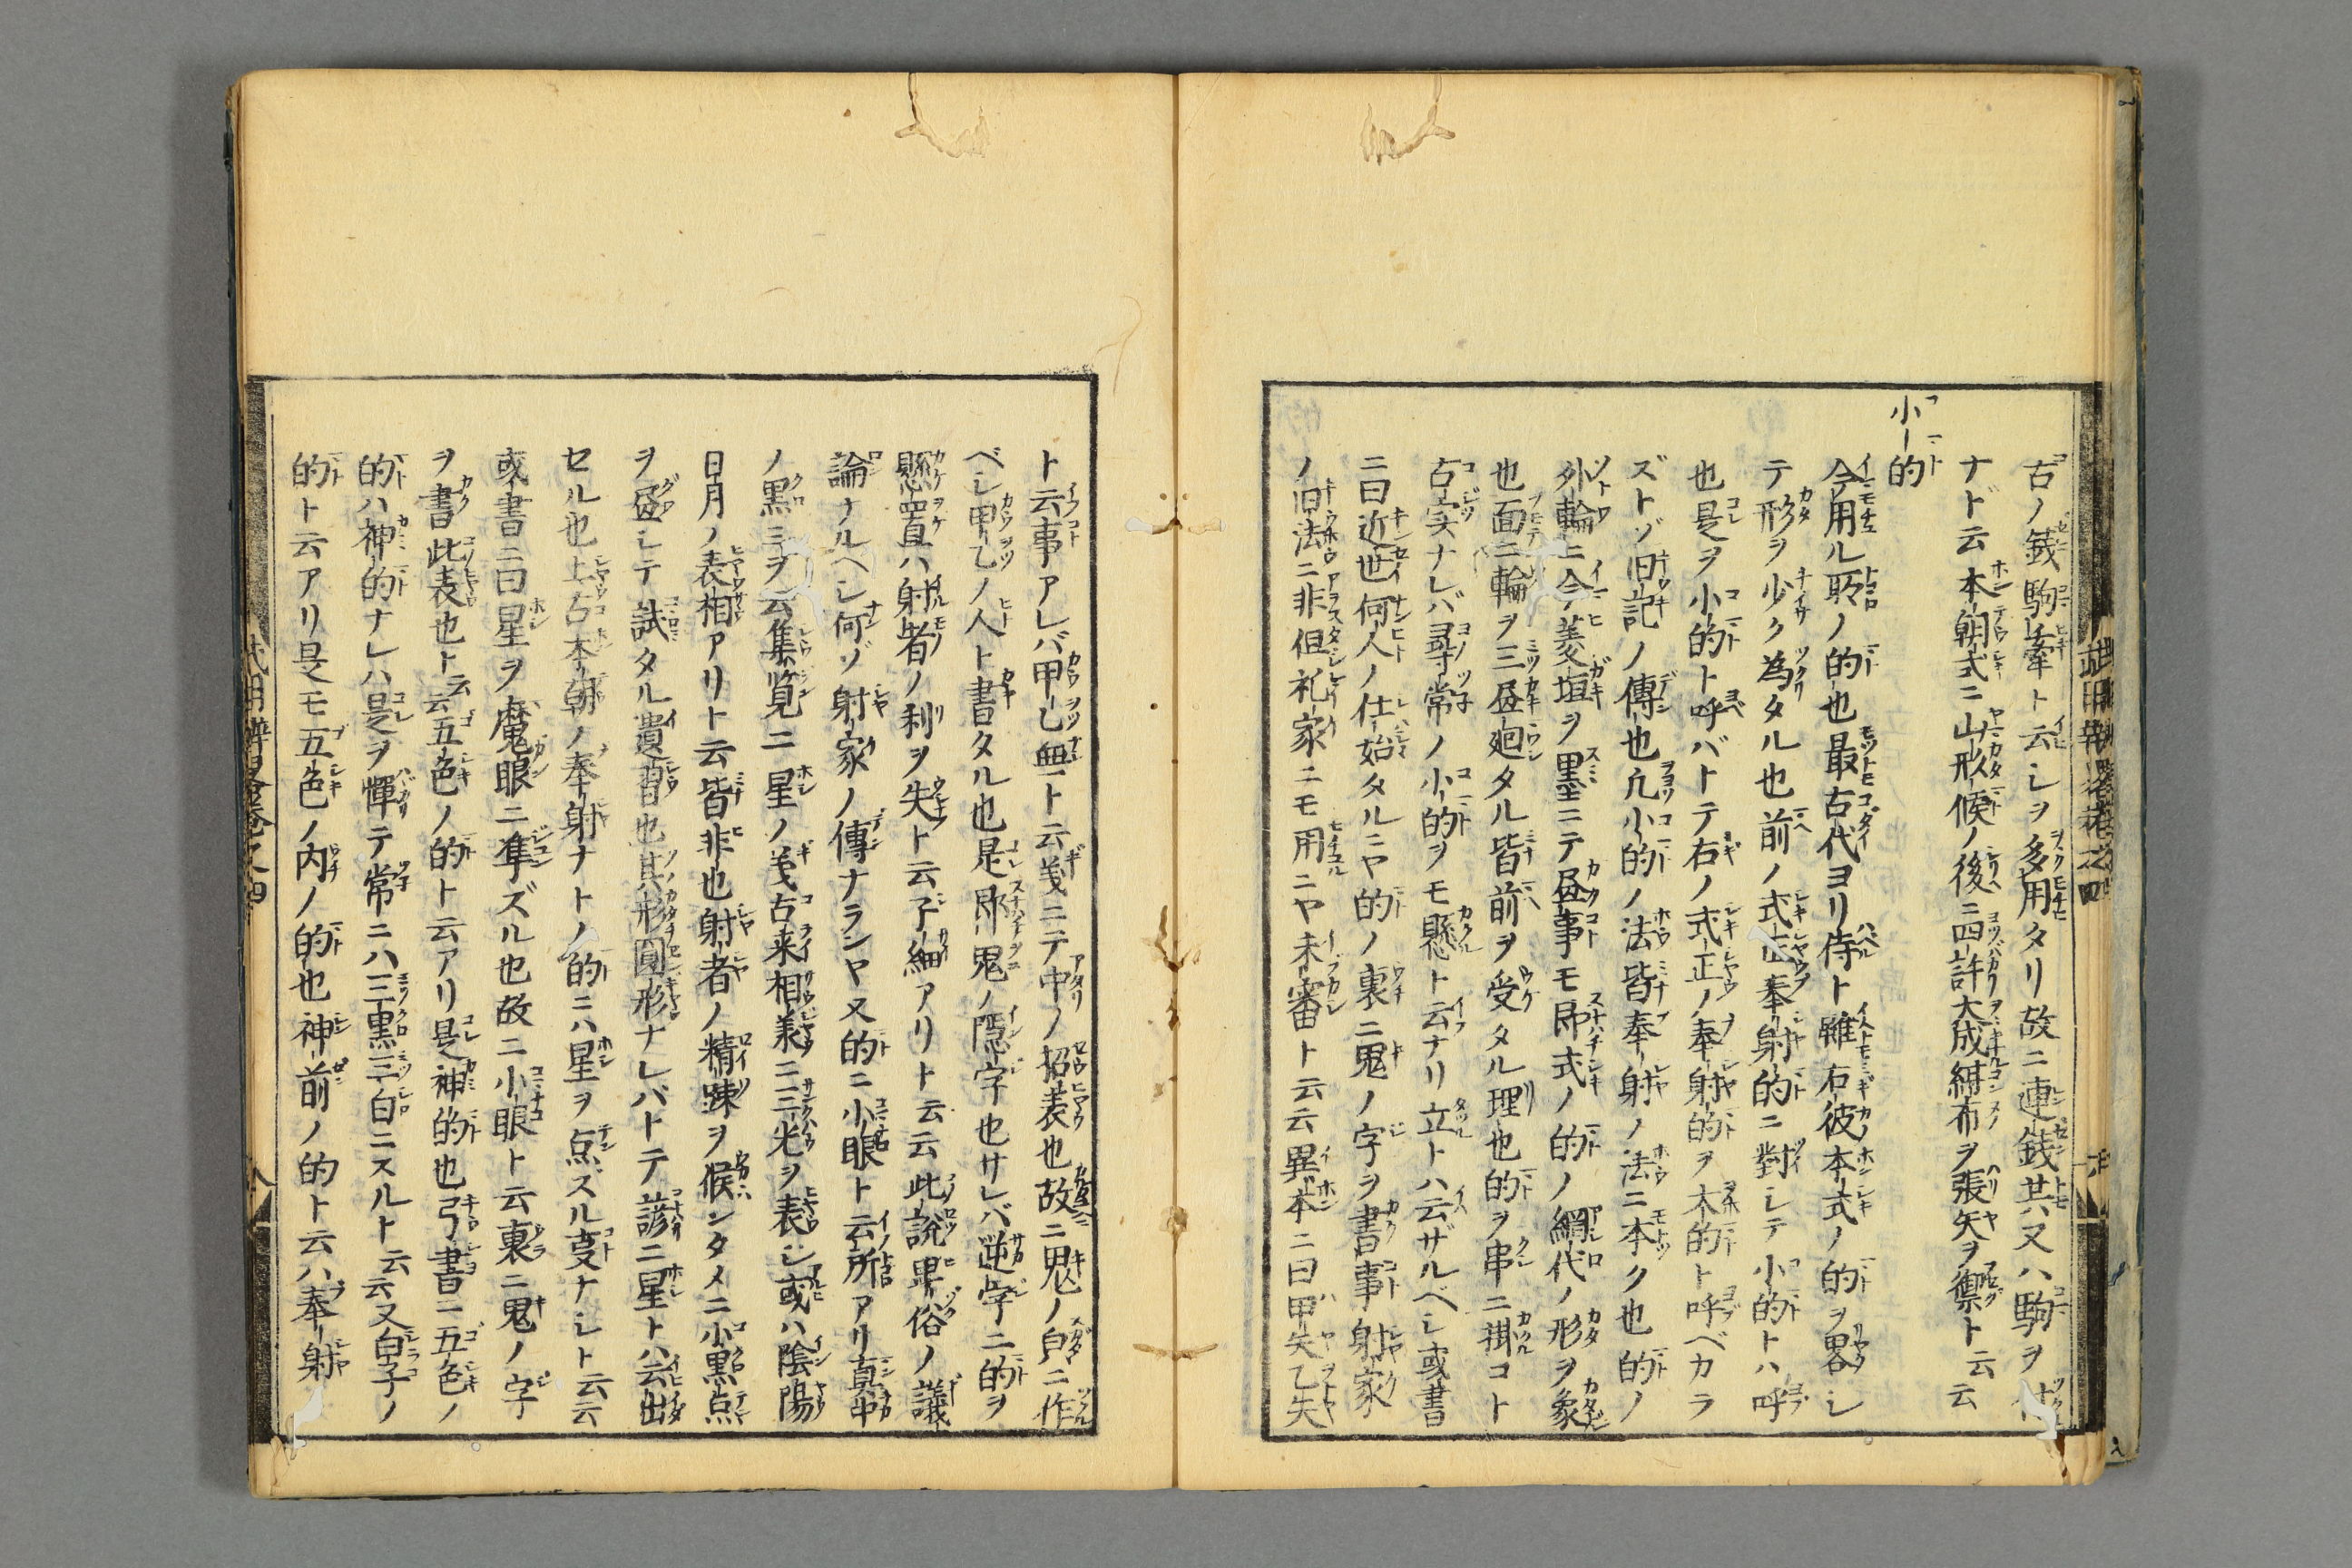 古ノ銭駒牽ト云レヲ多用タリ故ニ連銭其又ハ駒ヲ
ナド云本朝式ニ山形候ノ後ニ四許大成紺布ヲ張矢ヲ禦ト云云
小的
今用ル所ノ的也最古代ヨリ侍ト雖右彼本式ノ的ヲ畧シ
テ形ヲ少ク為タル也前ノ式正奉射的ニ對シテ小的トハ呼
也是ヲ小的ト呼バトテ右ノ式正ノ奉射的ヲ木的ト呼ベカラ
ズトゾ旧記ノ傳也凢小的ノ法皆奉射ノ法ニ本ク也的ノ
外輪ニ今菱垣ヲ墨ニテ畫事モ即式ノ的ノ網代ノ形ヲ象
也面ニ輪ヲ三畫廻タル皆前ヲ受タル理也的ヲ串ニ掛コト
古実ナレバ尋常ノ小的ヲモ懸ト云ナリ立トハ云ザルベシ或書
ニ曰近世何人ノ仕始タルニヤ的ノ裏ニ鬼ノ字ヲ書事射家
ノ旧法ニ非但礼家ニモ用ニヤ未審ト云云異本ニ曰甲矢乙矢
ト云事アレバ甲乙無ト云義ニテ中ノ招表也故ニ鬼ノ皃ニ作
ベシ甲乙ノ人ト書タル也是即鬼ノ隠字也サレバ逆字ニ的ヲ
懸置ハ射者ノ利ヲ失ト云子細アリト云云此説卑俗ノ議
論ナルベシ何ゾ射家ノ傳ナランヤ又的ニ小眼ト云所アリ真中
ノ黒ミヲ云集覧ニ星ノ義古来相義ニ三光ヲ表シ或ハ陰陽
日月ノ表相アリト云皆非也射者ノ精踈ヲ候ンタメニ小黒点
ヲ畫シテ試タル遺習也其形圓形ナレバトテ諺ニ星トハ云出
セル也上古本朝ノ奉射ナトノ的ニハ星ヲ点スル叓ナシト云云
或書ニ曰星ヲ魔眼ニ準ズル也故ニ小眼ト云裏ニ鬼ノ字
ヲ書此表也ト云五色ノ的ト云アリ是神的也弓書ニ五色ノ
的ハ神的ナレハ是ヲ憚テ常ニハ三黒三白ニスルト云云又白子ノ
的ト云アリ是モ五色ノ内ノ的也神前ノ的ト云ハ奉射